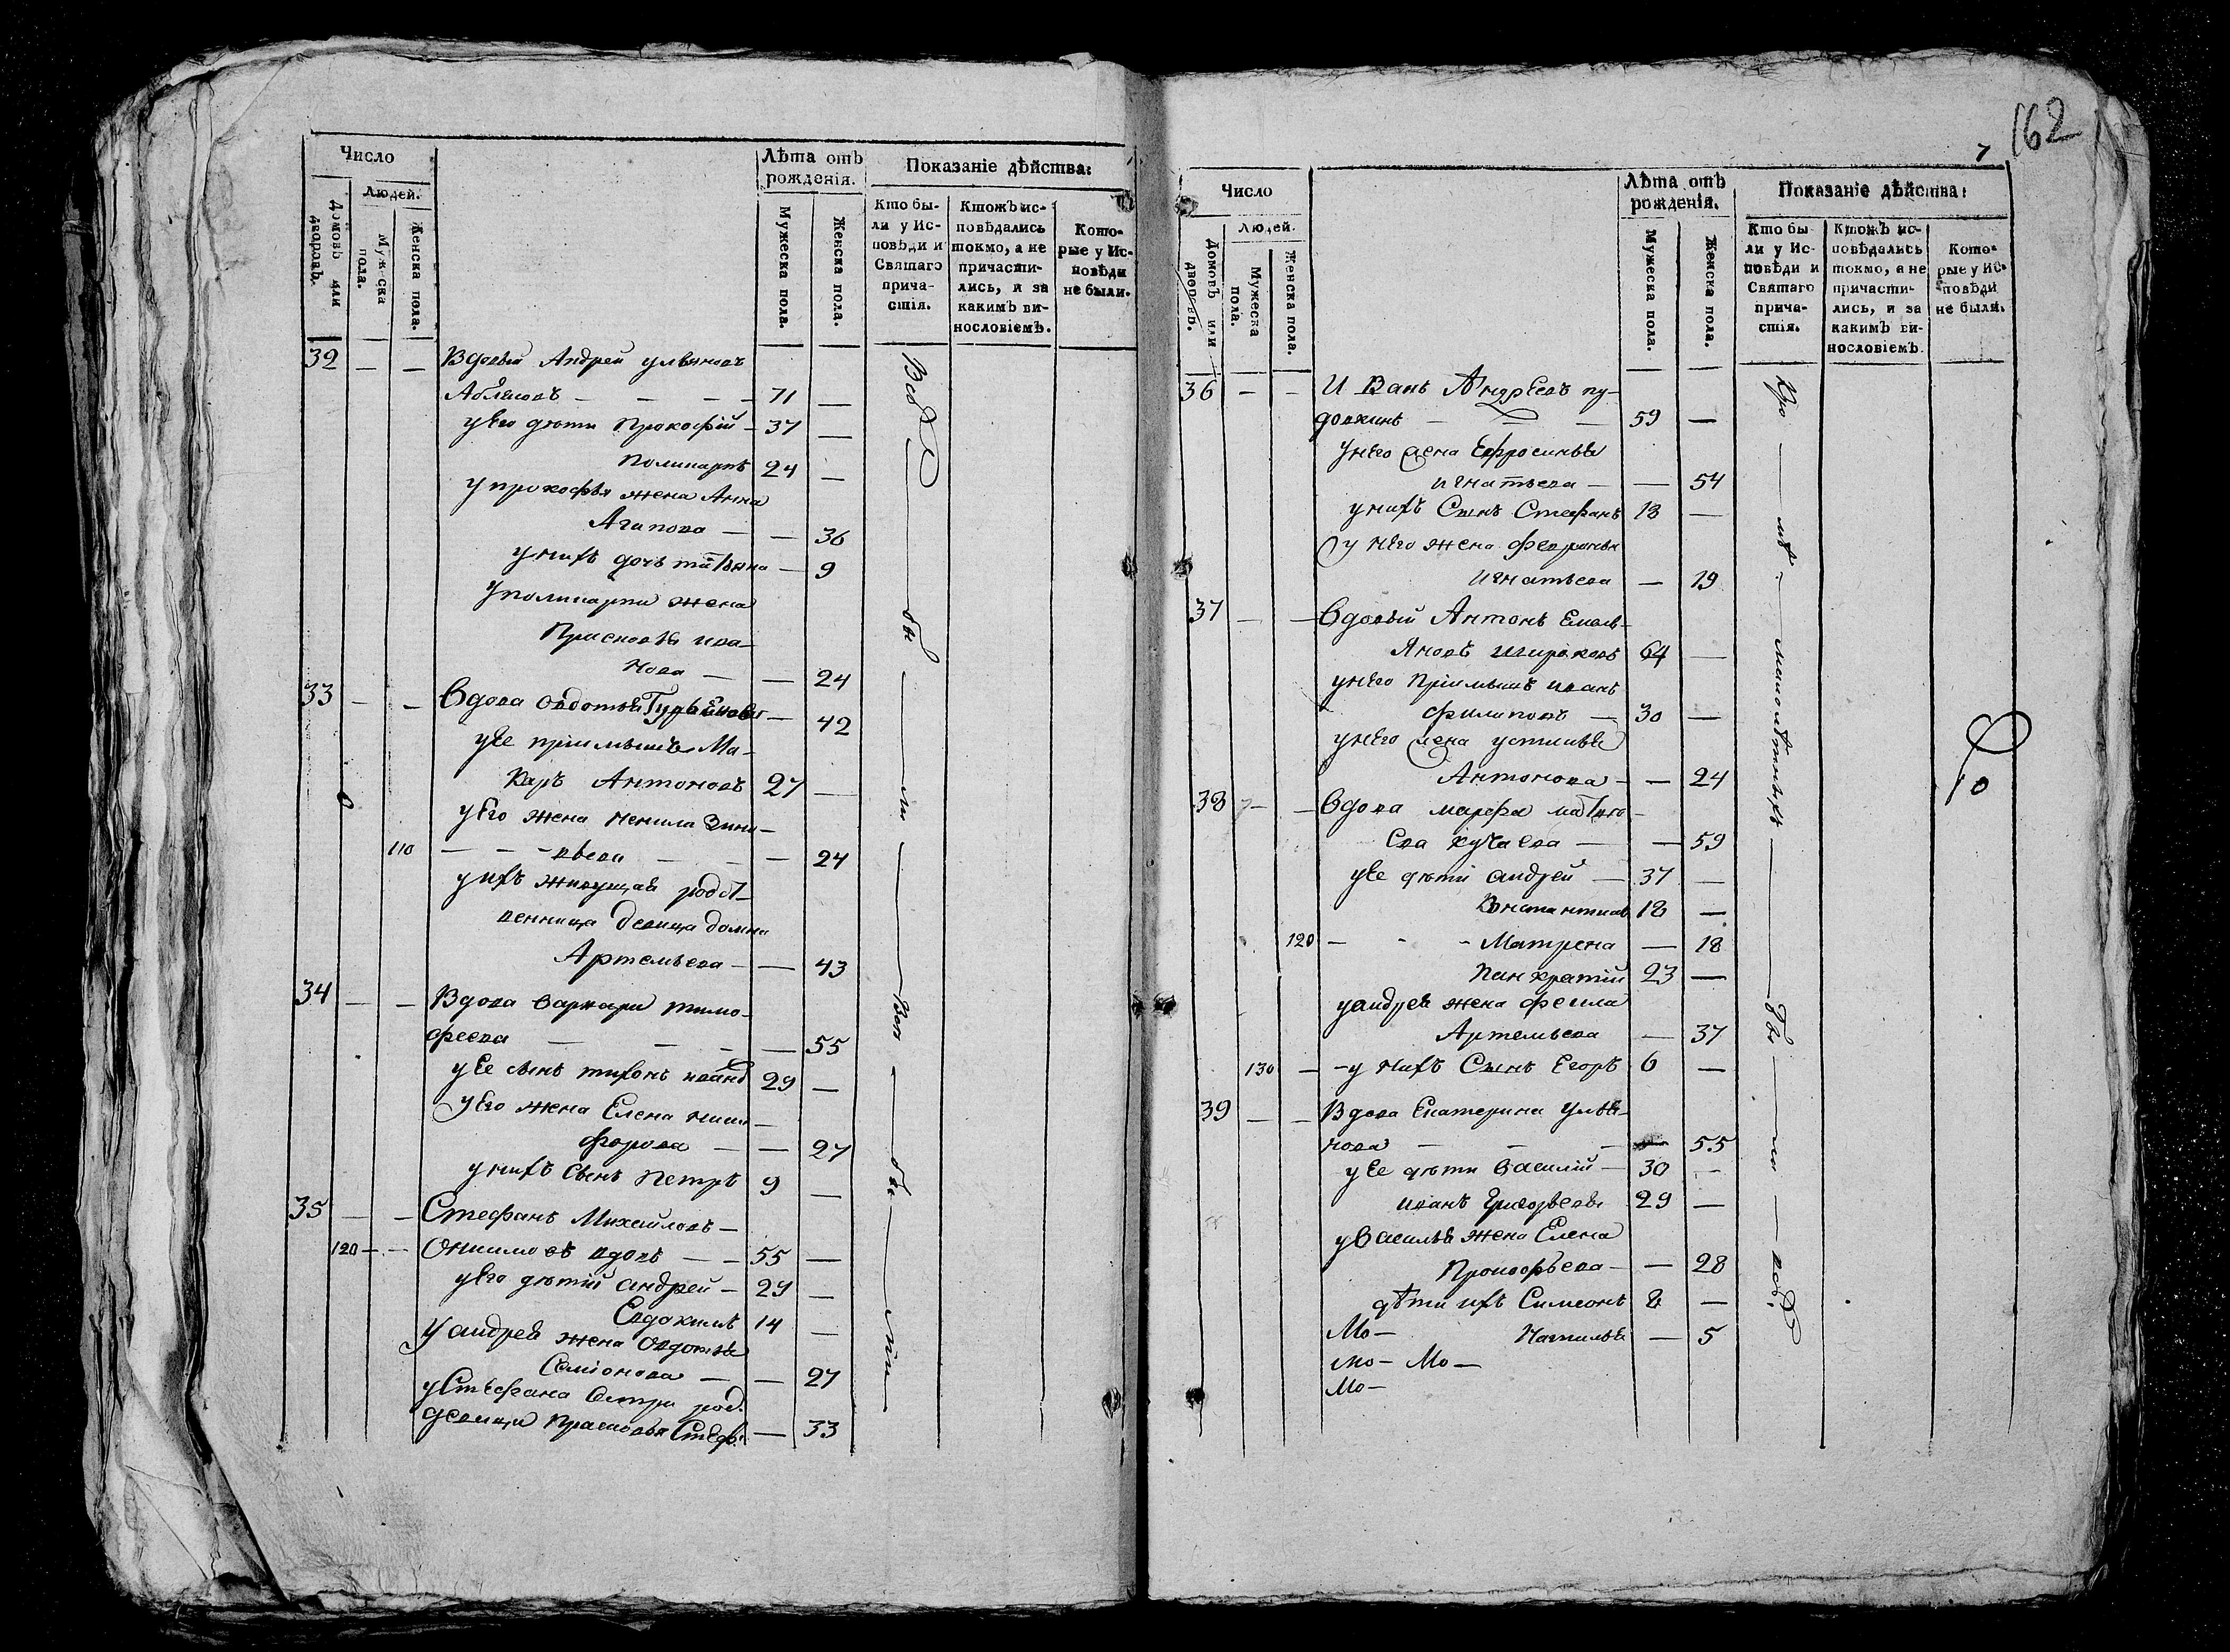 Число
Людей.
Домовъ или дворовъ.
Мужеска пола.
Женска пола.
Лѣта отъ рожденія.
Мужеска пола.
Женска пола.
Показаніе дѣйства:
Кто бы-
ли у Ис-
повѣди и
Святаго
прича-
стія.
Ктожъ ис-
повѣдались
токмо, а не
причасти-
лись, и за
какимъ ви-
нословіемъ.
Кото-
рые у Ис-
повѣди
не были.
32 — — Вдовый Андрей ульяновъ
— — — — 71 —
у Его дѣти Прокофій — 37 —
Поликарпъ 24 —
у прокофья жена Анна
Агапова — — 36
у нихъ дочь татьяна — 9
у поликарпа жена
Прасковья ива-
нова — — 24
33 — — Вдова овдотья — 42
у Ее пріимышъ Ма-
каръ Антоновъ 27 —
у Его жена ненила Зино-
110 — — — вьева — — — 24
у нихъ живущая родст-
венница девица домна
Артемьева — — 43
34 — — Вдова варвара тимо-
феева — — — — 55
у Ее сынъ тихонъ иванъ 29 —
у Его жена Елена ники-
форова — — 27
у нихъ сынъ Петръ 9 —
35 — — Стефанъ Михайловъ —
120 — — Онисимовъ вдовъ — — 55 —
у Его дѣтий андрей — 29 —
Евдокимъ 14 —
у андрея жена овдотья
Семіонова — — 27
у Стефана Сестра род.
девица Прасковья Стеф. — 33
Всѣ бы ли
бы ли
162
7
Число
Людей.
Домовъ или дворовъ.
Мужеска пола.
Женска пола.
Лѣта отъ рожденія.
Мужеска пола.
Женска пола.
Показаніе дѣйства:
Кто бы-
ли у Ис-
повѣди и
Святаго
прича-
стія.
Ктожъ ис-
повѣдались
токмо, а не
причасти-
лись, и за
какимъ ви-
нословіемъ.
Кото-
рые у Ис-
повѣди
не были.
36 — — Иванъ Андреевъ пу-
довкинъ — — — 59 —
у него жена Ефросинья
игнатьева — — 54
у нихъ Сынъ Стефанъ 18 —
у него жена февронья
Игнатьева — 19
37 — — Вдовый Антонъ Емель-
Яновъ широковъ 64 —
у него пріимышъ иванъ
филиповъ — 30 —
у него жена устинья
Антонова — — 24
38 — — Вдова марфа матве-
ева кучаева — — 59
у Ее дѣти андрей — 37 —
Константинъ 18 —
120 — - - Матрена — 18
Панкратій 23 —
у андрея жена фекла
Артемьева — 37
130 — - у нихъ Сынъ Егоръ 6 —
39 — — Вдова Екатерина улья-
нова — — — 55
у Ее дѣти василій — 30 —
иванъ Григорьевы 29 —
у василья жена Елена
Прокофьева — — 28
дѣти ихъ Симеонъ 8 —
Мо — Наталья — 5
мо — Мо —
Мо —
Кро мѣ малолѣтныхъ
10